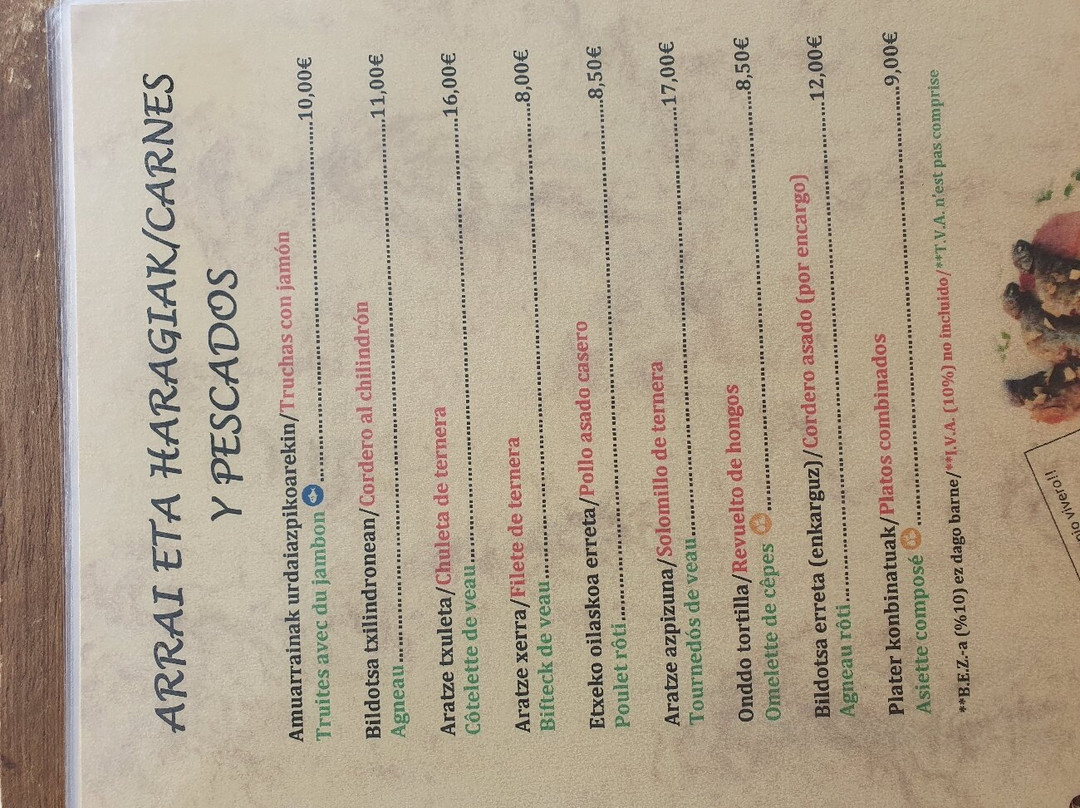 ARRAI ETA HARAGIAK/CARNES
Y PESCADOS
Amuarrainak urdaiazpikoarekin/Truchas con jamón
Truites avec du jambon ..........10,00€
Bildotsa txilindronean/Cordero al chilindrón
Agneau..........11,00€
Aratze txuleta/Chuleta de ternera
Côtelette de veau..........16,00€
Aratze xerra/Filete de ternera
Bifteck de veau..........8,00€
Etxeko oilaskoa erreta/Pollo asado casero
Poulet rôti..........8,50€
Aratze azpizuna/Solomillo de ternera
Tournedós de veau..........17,00€
Onddo tortilla/Revuelto de hongos
Omelette de cêpes ..........8,50€
Bildotsa erreta (enkarguz)/Cordero asado (por encargo)
Agneau rôti..........12,00€
Plater konbinatuak/Platos combinados
Asiette composé ..........9,00€
**B.E.Z.-a (%10) ez dago barne/**I.V.A. (10%) no incluido/**T.V.A. n'est pas comprise
vivero!!